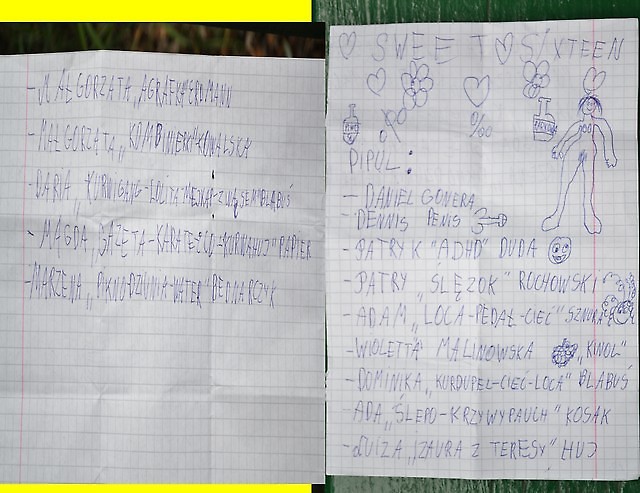 - MAŁGORZATA „AGRAFKA" ERDMANN
- MAŁGORZATA „KOMBINERKI" KOWALSKA
- DARIA „KURWIGANG-LOLITA BLABUŚ
- MAGDA „GAZETA-KARATESCO-KURWAHUJ" PAPIER
- MARZENA BEDNARCZYK
SWEET SIXTEEN
%
PIPUL:
- DANIEL GONERA
- DENNIS PENIS
- PATRYK "ADHD" DUDA
- PATRY „ŚLĘZOK" ROCHOWSKI
- ADAM „LOCA-PEDAŁ-CIEĆ" SZNURA
- WIOLETTA MALINOWSKA „KINOL"
- DOMINIKA „KURDUPEL-CIEĆ-LOCA" BLABUŚ
- ADA „ŚLEPO-KRZYWYPAUCH" KOSAK
- LUIZA „IZAURA Z TERESY" HUJ